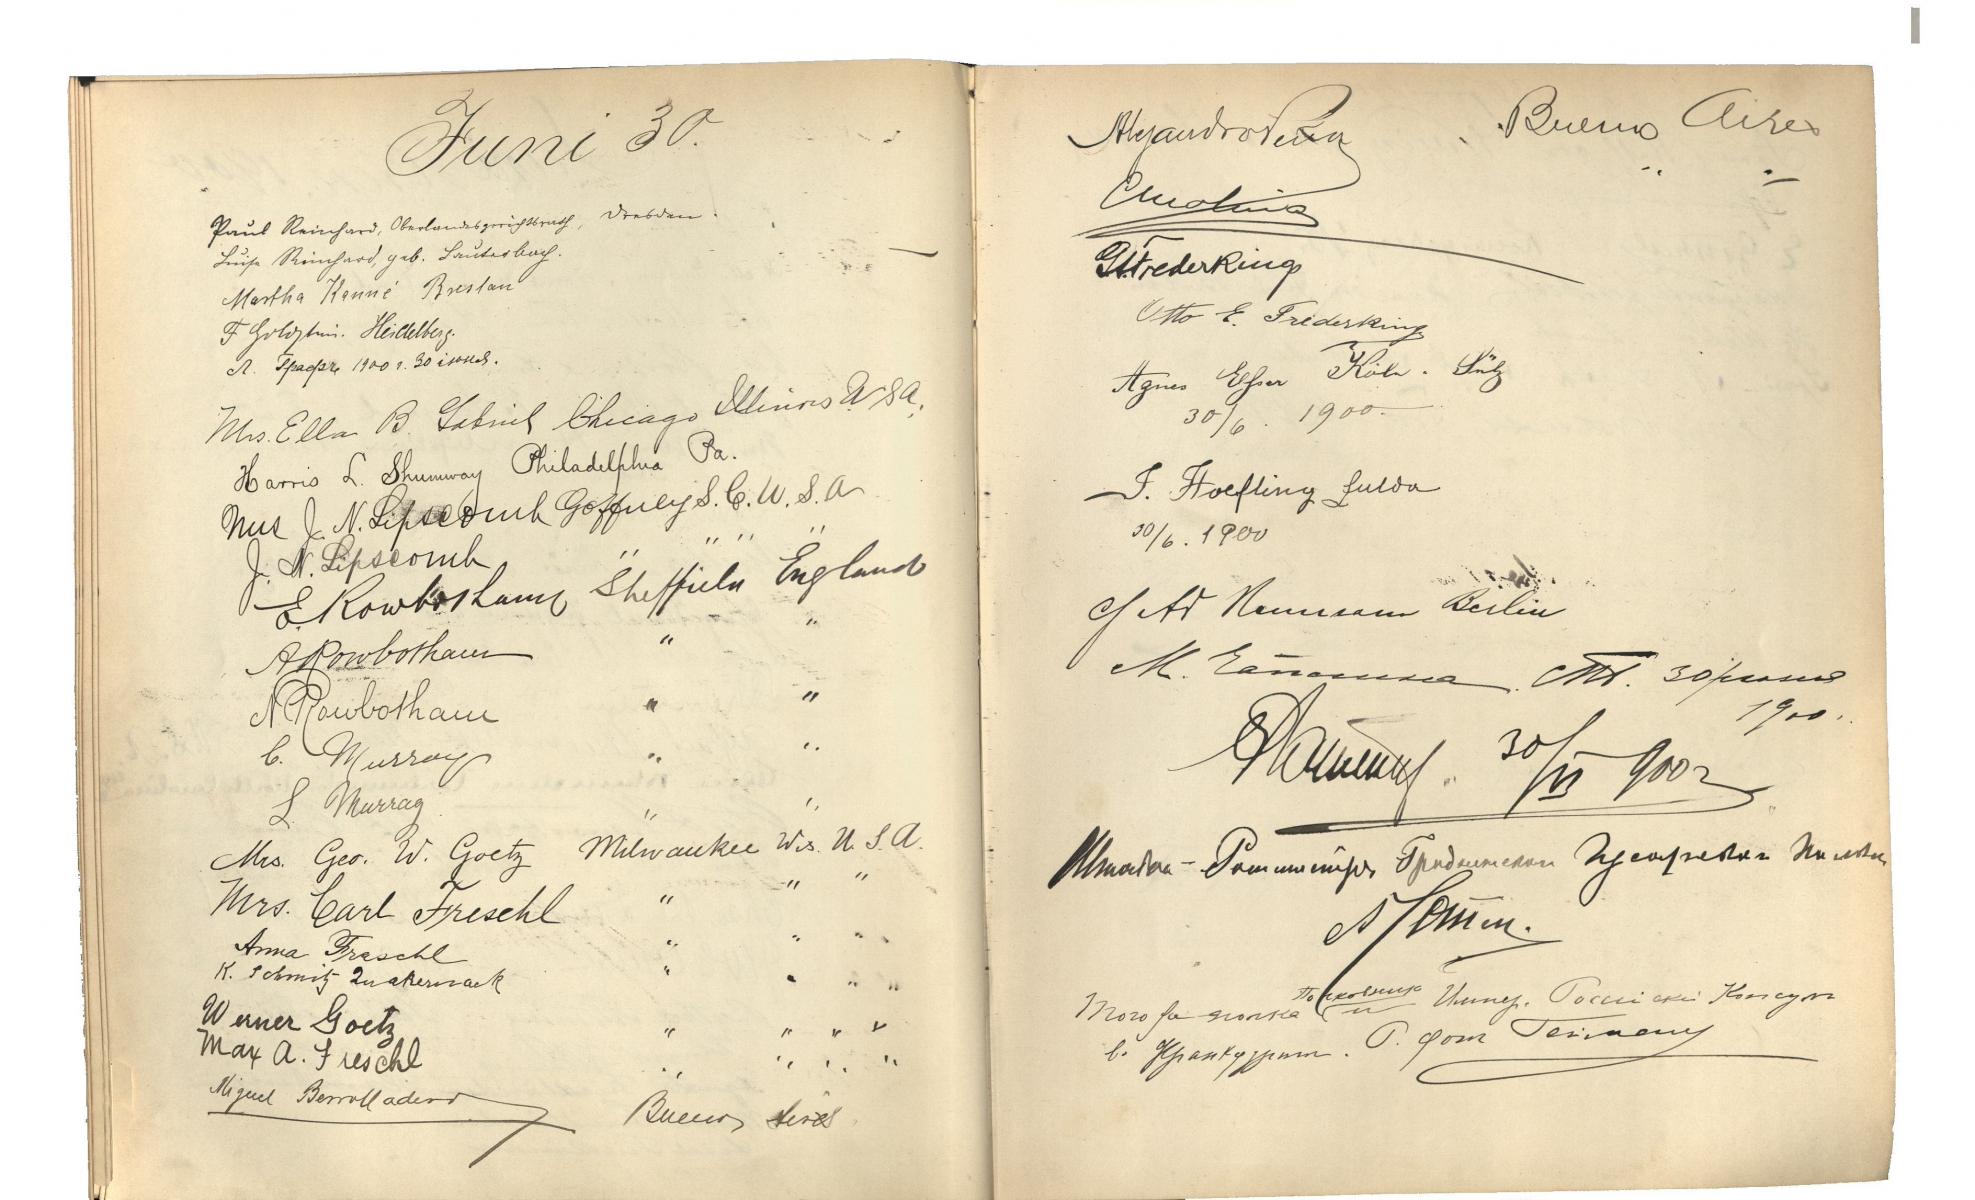 Juni 30.
Paul Reinhard, Oberlandesgerichtsrath, Dresden.
Luise Reinhard, geb. Lauterbach.
Martha Kanné Breslau
F Goldstein. Heidelberg.
Л. Графъ 1900 г. 30 іюня.
Mrs. Ella B. Gabriel Chicago Illinois U.S.A.
Harris L. Shumway Philadelphia Pa.
Mrs J. N. Lipscomb Gaffney S.C. U.S.A
J. N. Lipscomb " " " "
E. Rowbotham Sheffield England
A Rowbotham " "
N Rowbotham " "
C. Murray " "
L Murray " "
Mrs. Geo. W. Goetz Milwaukee Wis. U.S.A.
Mrs. Carl Freschl " " "
Anna Freschl " " " "
K. Schmitz Quakernack " " " "
Werner Goetz " " " "
Max A. Freschl " " " "
Miguel Buenos Aires
Alejandro Buenos Aires
" "
G. Frederking
Otto E. Frederking
Agnes Esser Köln-Sülz
30/6. 1900.
F. Hoefling Fulda
30/6. 1900
Ad Neumann Berlin
М. 30 іюня
1900.
30/VI 900 г
Штабсъ-Ротмистръ Гродненскаго Гусарскаго Полка
Того же полка Полковникъ и Импер. Россійскій Консулъ
въ Франкфуртѣ.